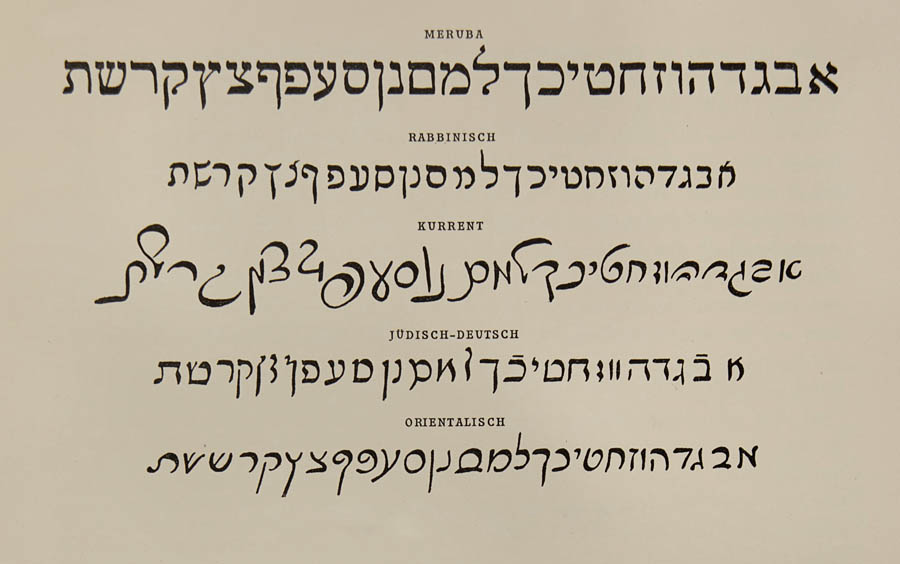 MERUBA
אבגדהוזחטיכךלמםנןסעפףצץקרשת
RABBINISCH
אבגדהוזחטיכךלמםנןסעפףצץקרשת
KURRENT
אבגדהוזחטיכךלמםנןסעפףצץקרשת
JÜDISCH-DEUTSCH
א בֿגדהוזחטיכֿךלמםנןסעפףצץקרשת
ORIENTALISCH
אבגדהוזחטיכךלמםנןסעפףצץקרששת